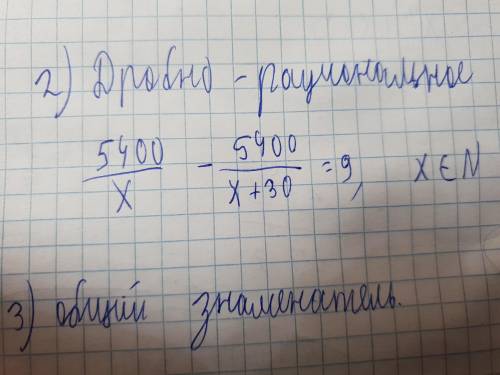 2) Дробно - рациональное
5400/x - 5400/x+30 = 9, x ∈ N
3) общий знаменатель.